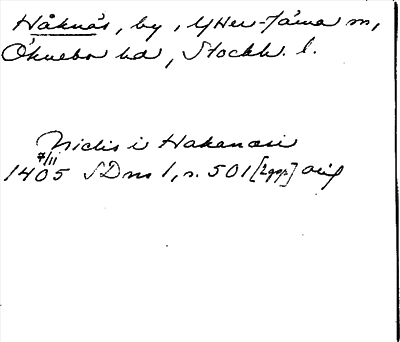 Håknäs, by, Ytter-Järna sn,
Öknebo hd, Stockh. l.
Niclis i Hakanæsi
7/11
1405 SDns 1, s. 501 [Egga] orig